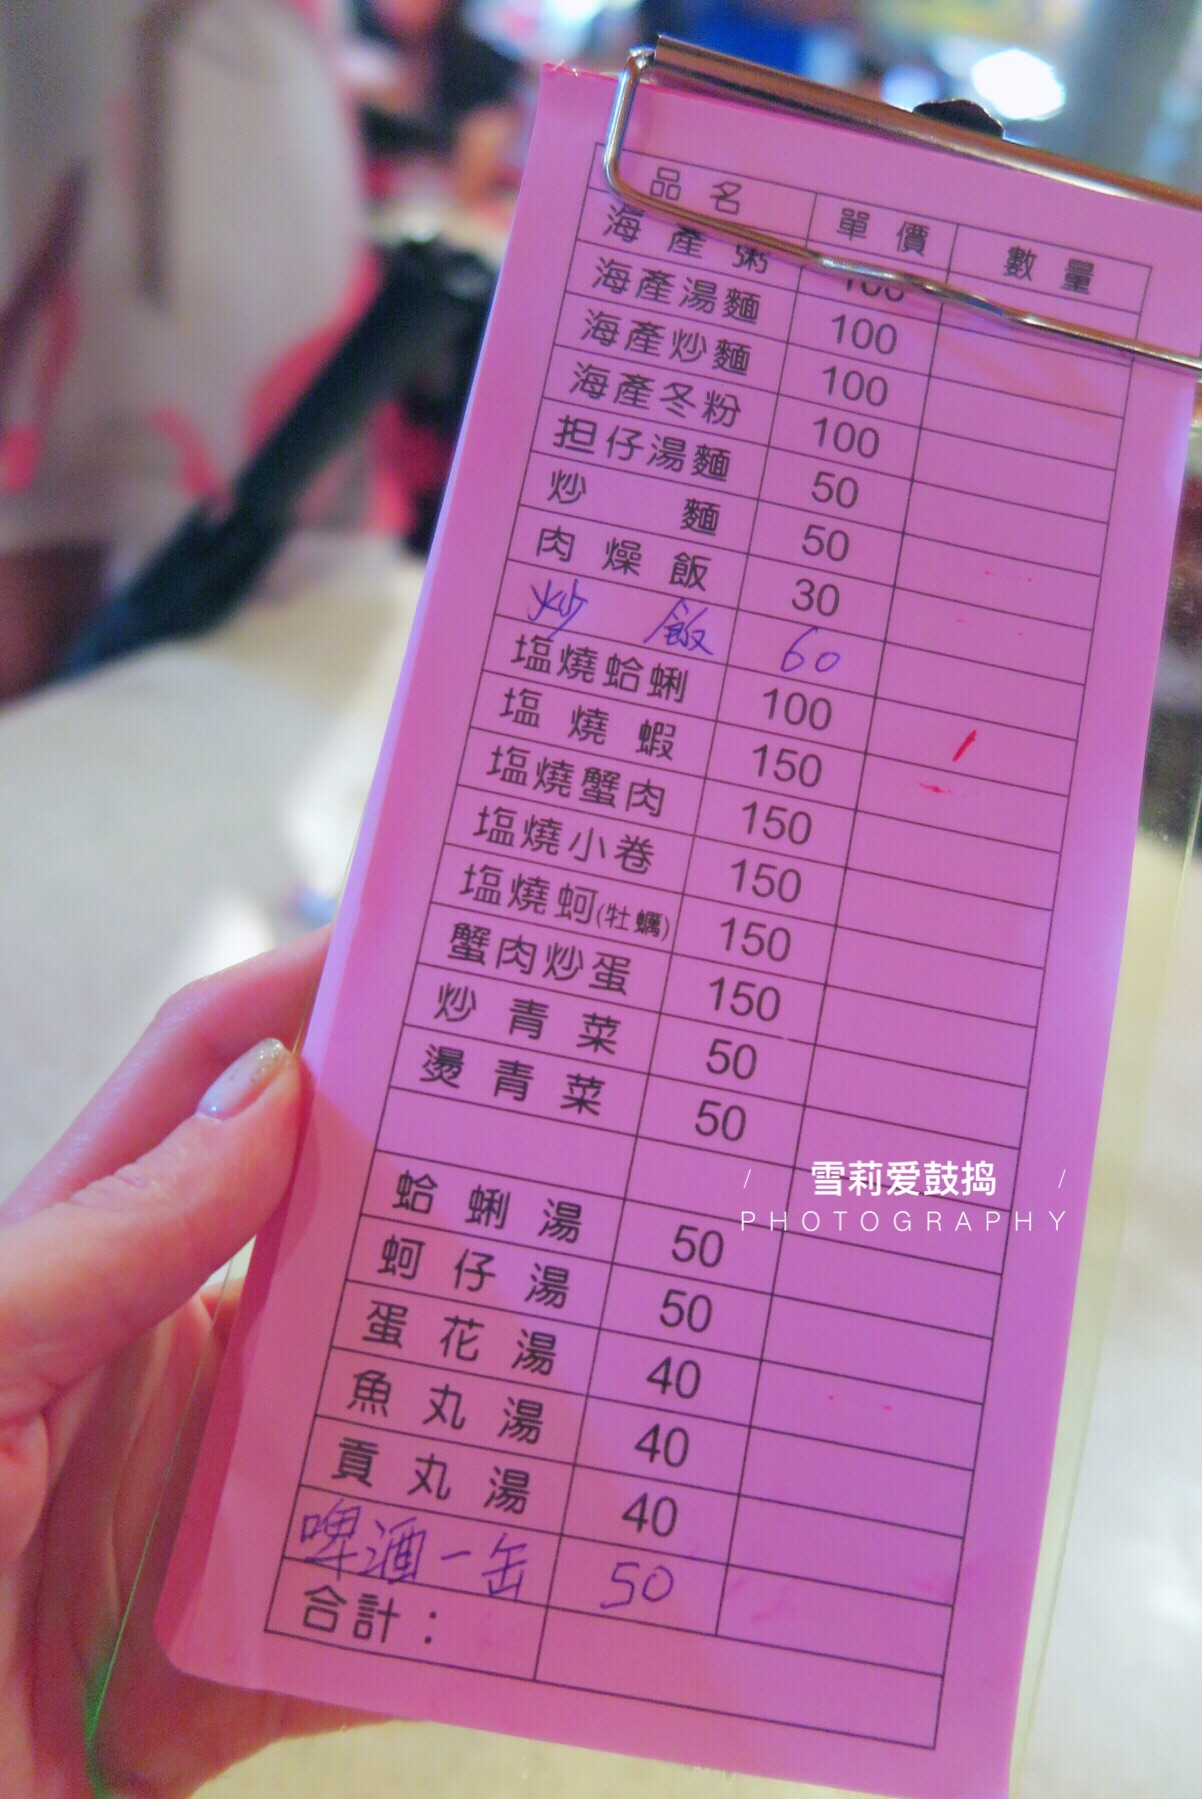 品名 單價 數量
海產粥 100
海產湯麵 100
海產炒麵 100
海產冬粉 100
担仔湯麵 50
炒麵 50
肉燥飯 30
炒飯 60
塩燒蛤蜊 100
塩燒蝦 150
塩燒蟹肉 150
塩燒小卷 150
塩燒蚵(牡蠣) 150
蟹肉炒蛋 150
炒青菜 50
燙青菜 50
蛤蜊湯 50
蚵仔湯 50
蛋花湯 40
魚丸湯 40
貢丸湯 40
啤酒一缶 50
合計：
/ 雪莉爱鼓捣 /
PHOTOGRAPHY